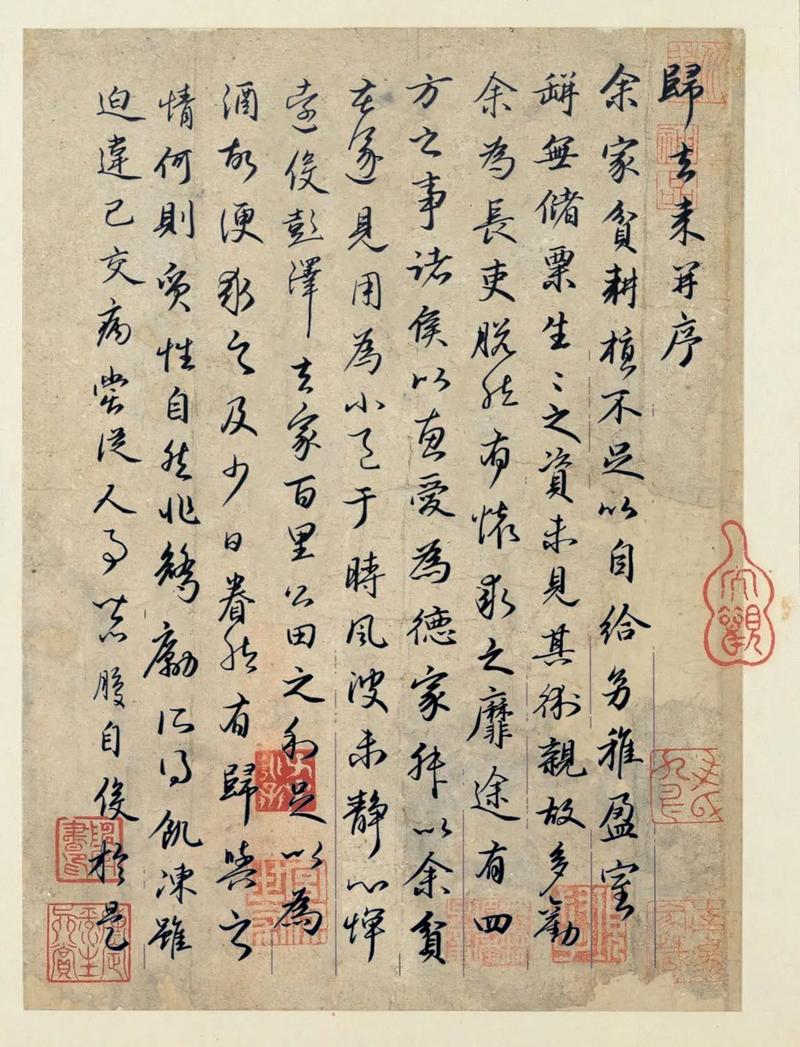 歸去來并序
余家貧耕植不足以自給幼稚盈室
缾無儲粟生〻之資未見其術親故多勸
余為長吏脫然有懷求之靡途有四
方之事諸侯以惠愛為德家叔以余貧
苦遂見用為小邑于時風波未靜心憚
遠役彭澤去家百里公田之利足以為
酒故便求之及少日眷然有歸與之
情何則質性自然非矯勵所得飢凍雖
迫違己交病嘗從人事皆口腹自役於是